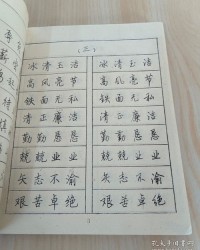 (三)
冰清玉洁 冰清玉洁
高风亮节 高风亮节
铁面无私 铁面无私
清正廉洁 清正廉洁
勤勤恳恳 勤勤恳恳
兢兢业业 兢兢业业
矢志不渝 矢志不渝
艰苦卓绝 艰苦卓绝
3